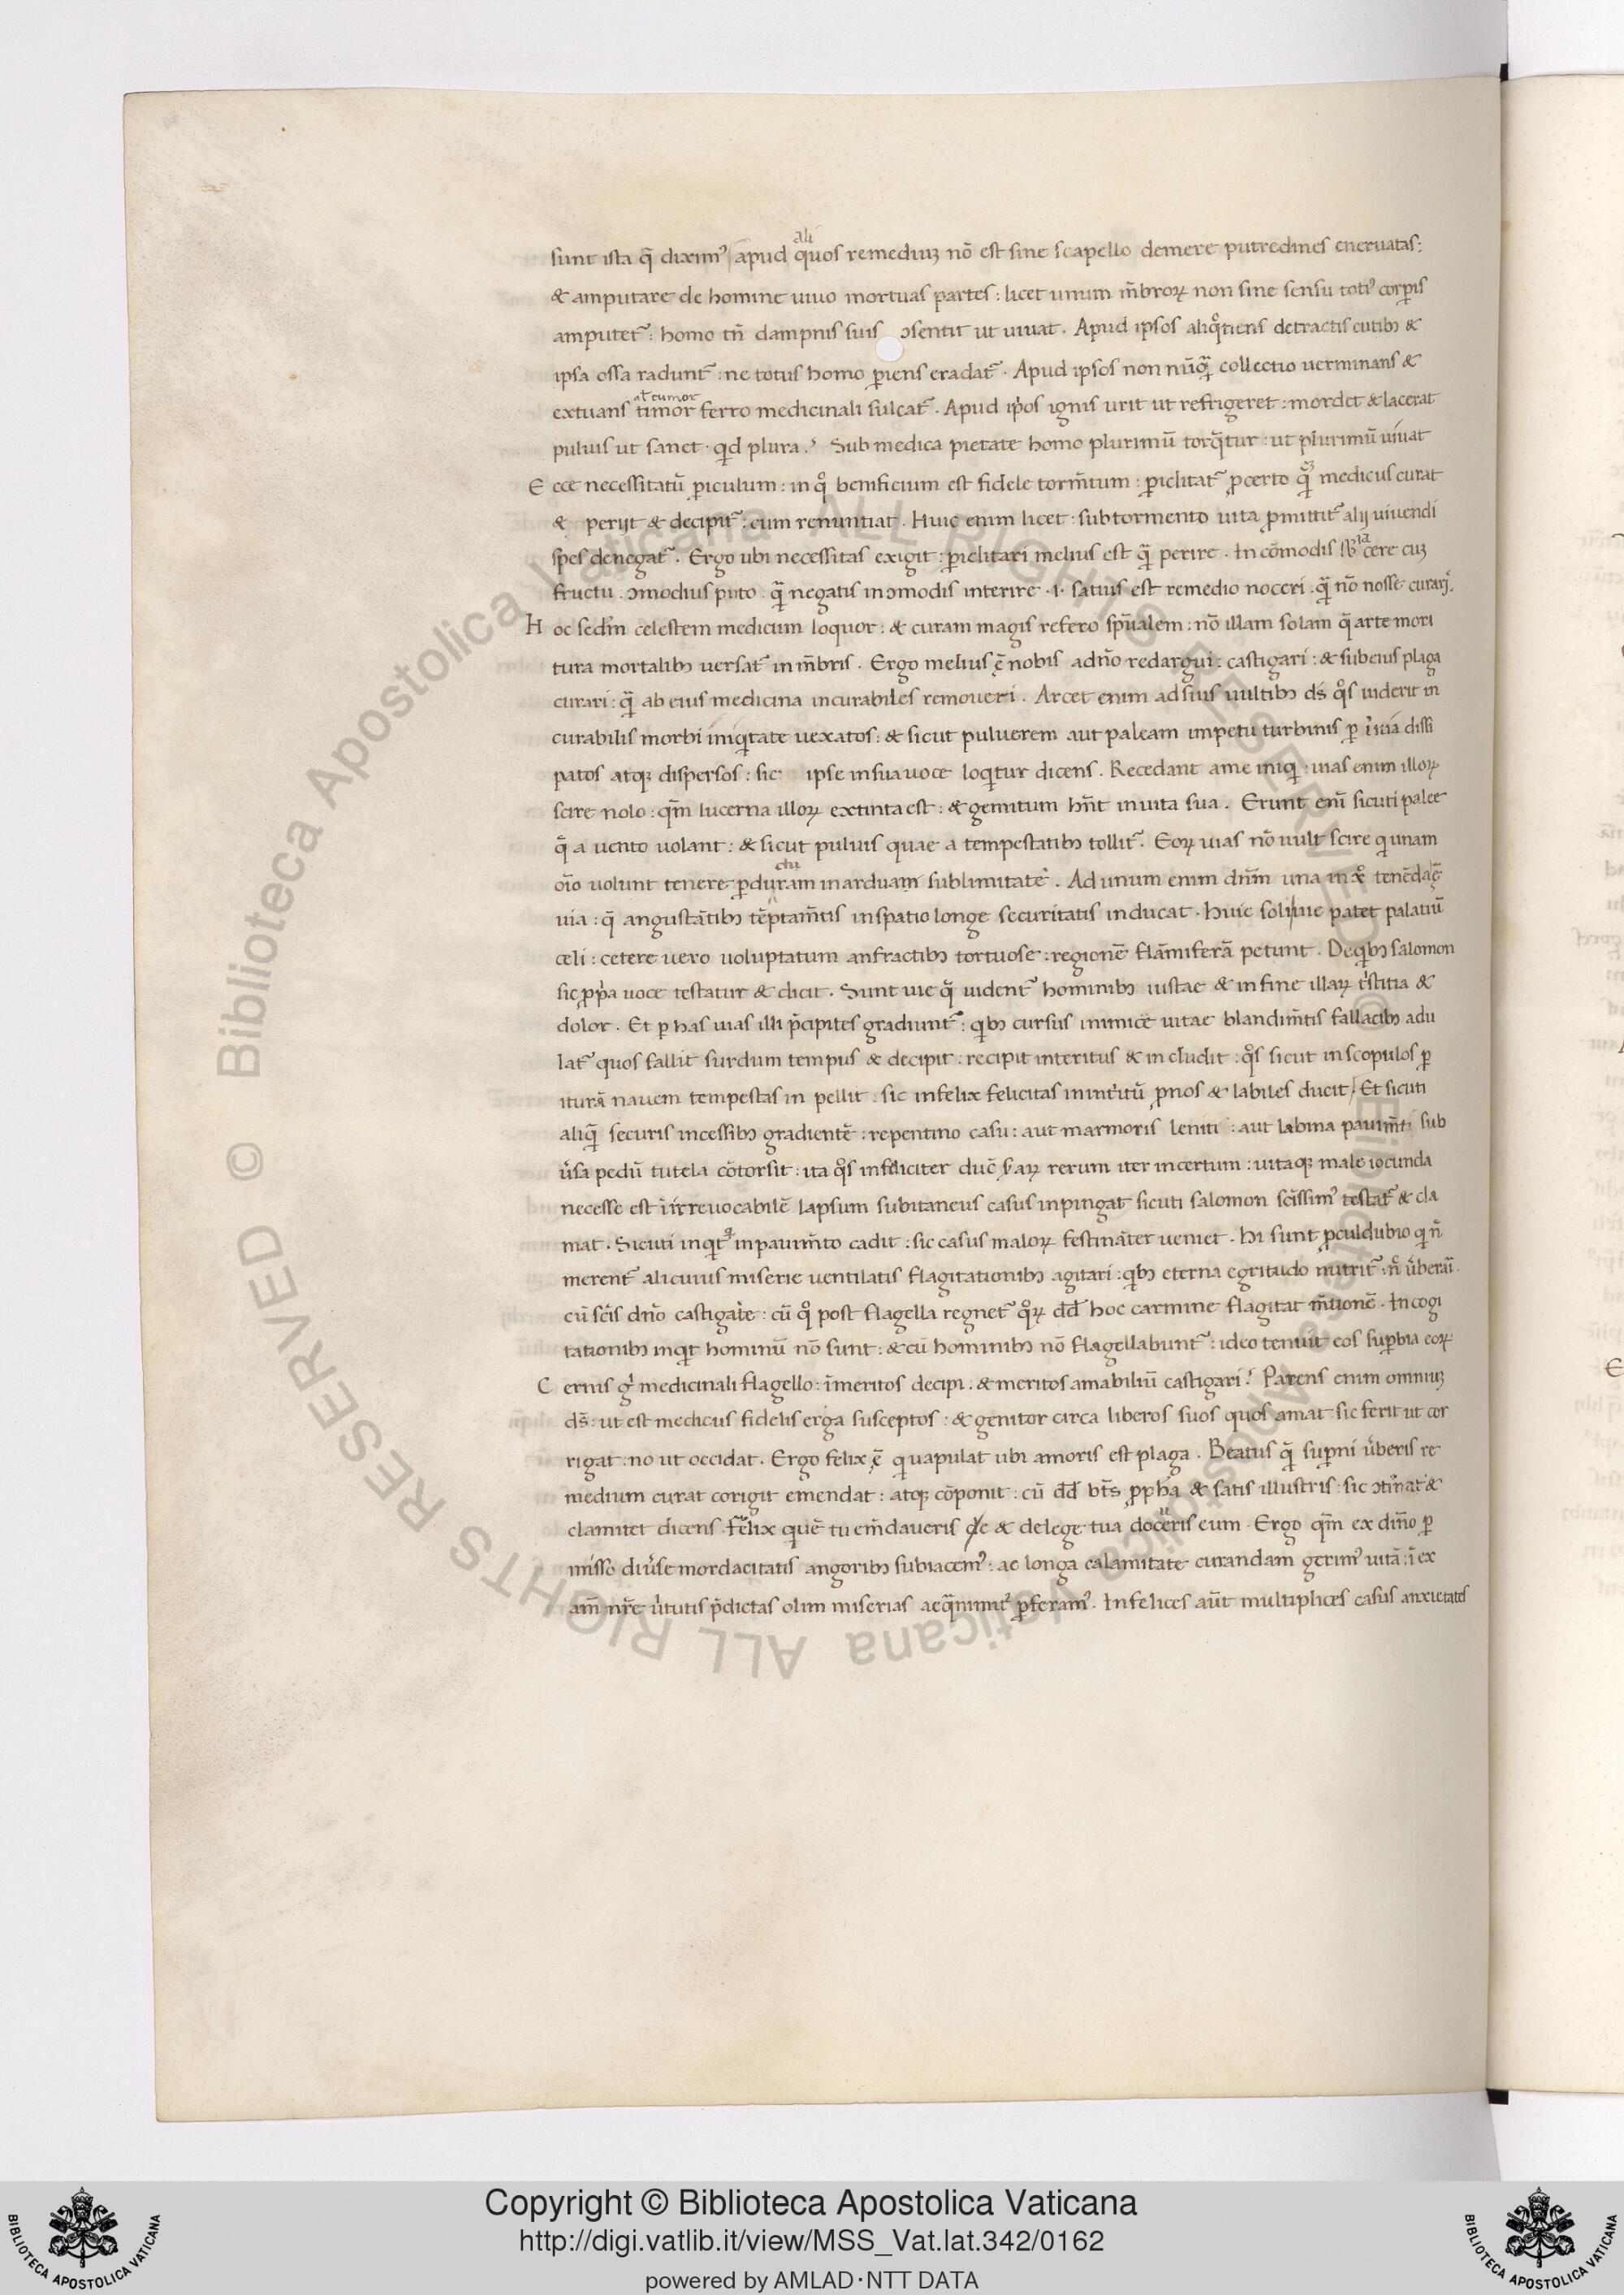 ali
sunt ista q̄ diximꝰ apud quos remediuꝫ nō est sine scapello demere putredines eneruatas:
& amputare de homine uiuo mortuas partes: licet unum m̄broꝝ non sine sensu totiꝰ corꝑis
amputet᷑: homo tn̄ dampnis suis ↄsentit ut uiuat. Apud ipsos aliqͦtiens detractis cutibꝫ &
ipsa ossa radunt᷑: ne totus homo ꝑiens eradat᷑. Apud ipsos non nūqᷓ collectio uerminans &
at tumor
extuans timor ferro medicinali sulcat᷑. Apud ip̄os ignis urit ut refrigeret: mordet & lacerat
puluis ut sanet. qͥd plura? Sub medica pietate homo plurimū torq̄tur: ut plurimū uiuat
E cce necessitatū ꝑiculum: in qͦ benificium est fidele torm̄tum: ꝑiclitat᷑ ꝓcerto medicus curat
& perijt & decipit᷑: cum renuntiat. Huic enim licet: sub tormento uita ꝓmittit᷑ alij uiuendi
spes denegat᷑. Ergo ubi necessitas exigit: ꝑiclitari melius est qᷓ perire. In cōmodis cuꝫ
fructu. ↄmodius puto qᷓ negatis inↄmodis interire .i. satius est remedio noceri. qᷓ nō nosse curari.
H oc sed̄m celestem medicum loquor: & curam magis refero sp̄ualem: nō illam solam q̄ arte mori
tura mortalibꝫ uersat᷑ in m̄bris. Ergo melius ę̄ nobis a dn̄o redargui: castigari: & sub eius plaga
curari: qᷓ ab eius medicina incurabiles remoueri. Arcet enim ad suis uultibꝫ ds̄ qͦs uiderit in
curabilis morbi iniqͥtate uexatos: & sicut puluerem aut paleam impetu turbinis ꝑ dissi
patos atqꝫ dispersos: sic ipse in sua uoce loqͥtur dicens. Recedant a me iniqͥ: uias enim illoꝝ
scire nolo: qm̄ lucerna illoꝝ extinta est: & gemitum hn̄t in uita sua. Erunt eni᷑ sicuti palee
q̄ a uento uolant: & sicut puluis quae a tempestatibꝫ tollit᷑. Eoꝝ uias nō uult scire qͥ unam
ctu
oīo uolunt tenere ꝑduram in arduam sublimitatē. Ad unum enim dn̄m una tenēda ę̄
uia: q̄ angustātibꝫ tēptam̄tis in spatio longe securitatis inducat. Huic soli uie patet palatiū
celi: cetere uero uoluptatum anfractibꝫ tortuose: regionē flāmiferā petunt. De qͥbꝫ salomon
sic ꝓpͥa uoce testatur & dicit. Sunt uie q̄ uident᷑ hominibꝫ iustae & in fine illaꝝ tͥstitia &
dolor. Et ꝑ has uias illi p̄cipites gradiunt᷑: qͥbꝫ cursus inimice uitae blandim̄tis fallacibꝫ adu
lat᷑ quos fallit surdum tempus & decipit: recipit interitus & includit: qͦs sicut in scopulos ꝑ
iturā nauem tempestas in pellit: sic infelix felicitas in intͥitū ꝓnos & labiles ducit. Et sicuti
aliqᷓ securis incessibꝫ gradientē: repentino casu: aut marmoris leniti: aut labina pauim̄ti sub
uͥsa pedū tutela cōtorsit: ita qͦs infeliciter duc̄ rerum iter incertum: uitaqꝫ male iocunda
necesse est irreuocabilē lapsum subitaneus casus inpingat sicuti salomon scīssimꝰ testat᷑ & cla
mat. Sicuti inqͥt qͥ in pauim̄to cadit: sic casus maloꝝ festināter ueniet. Hi sunt ꝓculdubio qͥ n̄
merent᷑ alicuius miserie uentilatis flagitationibꝫ agitari: qͥbꝫ eterna egritudo nutrit᷑:
cū scīs dn̄o castigate: cū qͦ post flagella regnet᷑ qͦꝝ dd̄ hoc carmine flagitat m̄tionē. In cogi
tationibꝫ inqͥt hominū nō sunt: & cū hominibꝫ nō flagellabunt᷑: ideo tenuit eos suꝑbia eoꝝ
C ernis gͥ medicinali flagello: īmeritos decipi: & meritos amabiliū castigari? Parens enim omniuꝫ
ds̄: ut est medicus fidelis erga susceptos: & genitor circa liberos suos quos amat: sic ferit ut cor
rigat: no ut occidat. Ergo felix ę̄ qͥ uapulat ubi amoris est plaga. Beatus qᷓ suꝑni uͥberis re
medium curat corigit emendat: atqꝫ cōponit: cū dd̄ bt̄s ꝓph̄a & satis illustris: sic &
clamitet dicens. Felix quē tu em̄daueris dn̄e & de lege tua docueris eum. Ergo qm̄ ex dīno ꝑ
misso diuͥse mordacitatis angoribꝫ subiacemꝰ: ac longa calamitate curandam gerimꝰ uitā: ī ex
am̄ nr̄e uͥtutis p̄dictas olim miserias aeqᷓnimitͥ ꝑferamꝰ. Infelices aūt multiplices casus anxietates
Copyright © Biblioteca Apostolica Vaticana
http://digi.vatlib.it/view/MSS_Vat.lat.342/0162
powered by AMLAD·NTT DATA
BIBLIOTECA APOSTOLICA VATICANA
BIBLIOTECA APOSTOLICA VATICANA
© Biblioteca Apostolica Vaticana ALL RIGHTS RESERVED
© Biblioteca Apostolica Vaticana ALL RIGHTS RESERVED